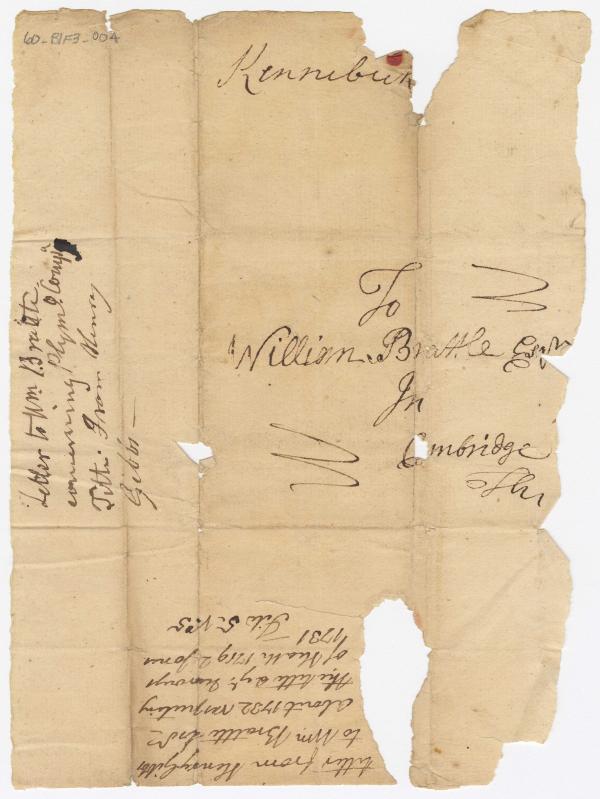 60-B1F3-004
Kennebeck
To
William Brattle Esqr
In
Cambridge
Letter to Wm Brattle
concerning Plymo Compa
Title From Henry
Gibbs —
Letter from Henry Gibbs
to Wm Brattle
about 1732 respecting
the title
of Heath 1719 &
1731 File 5. No 5